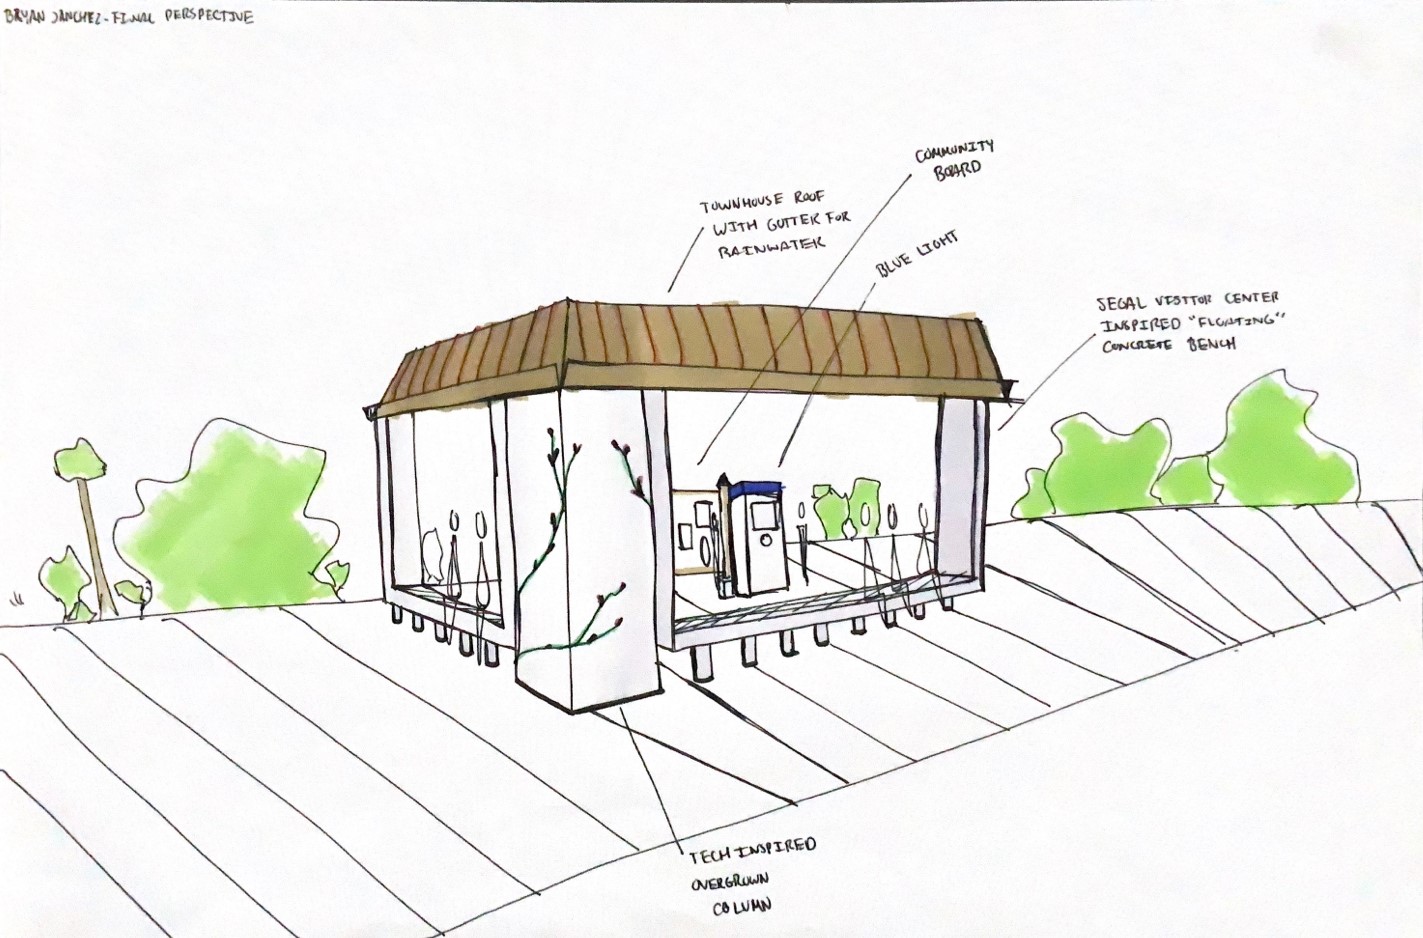 BRYAN SANCHEZ - FINAL PERSPECTIVE
COMMUNITY
BOARD
TOWNHOUSE ROOF
WITH GUTTER FOR
RAINWATER
BLUE LIGHT
SEGAL VISITOR CENTER
INSPIRED "FLOATING"
CONCRETE BENCH
TECH INSPIRED
OVERGROWN
COLUMN